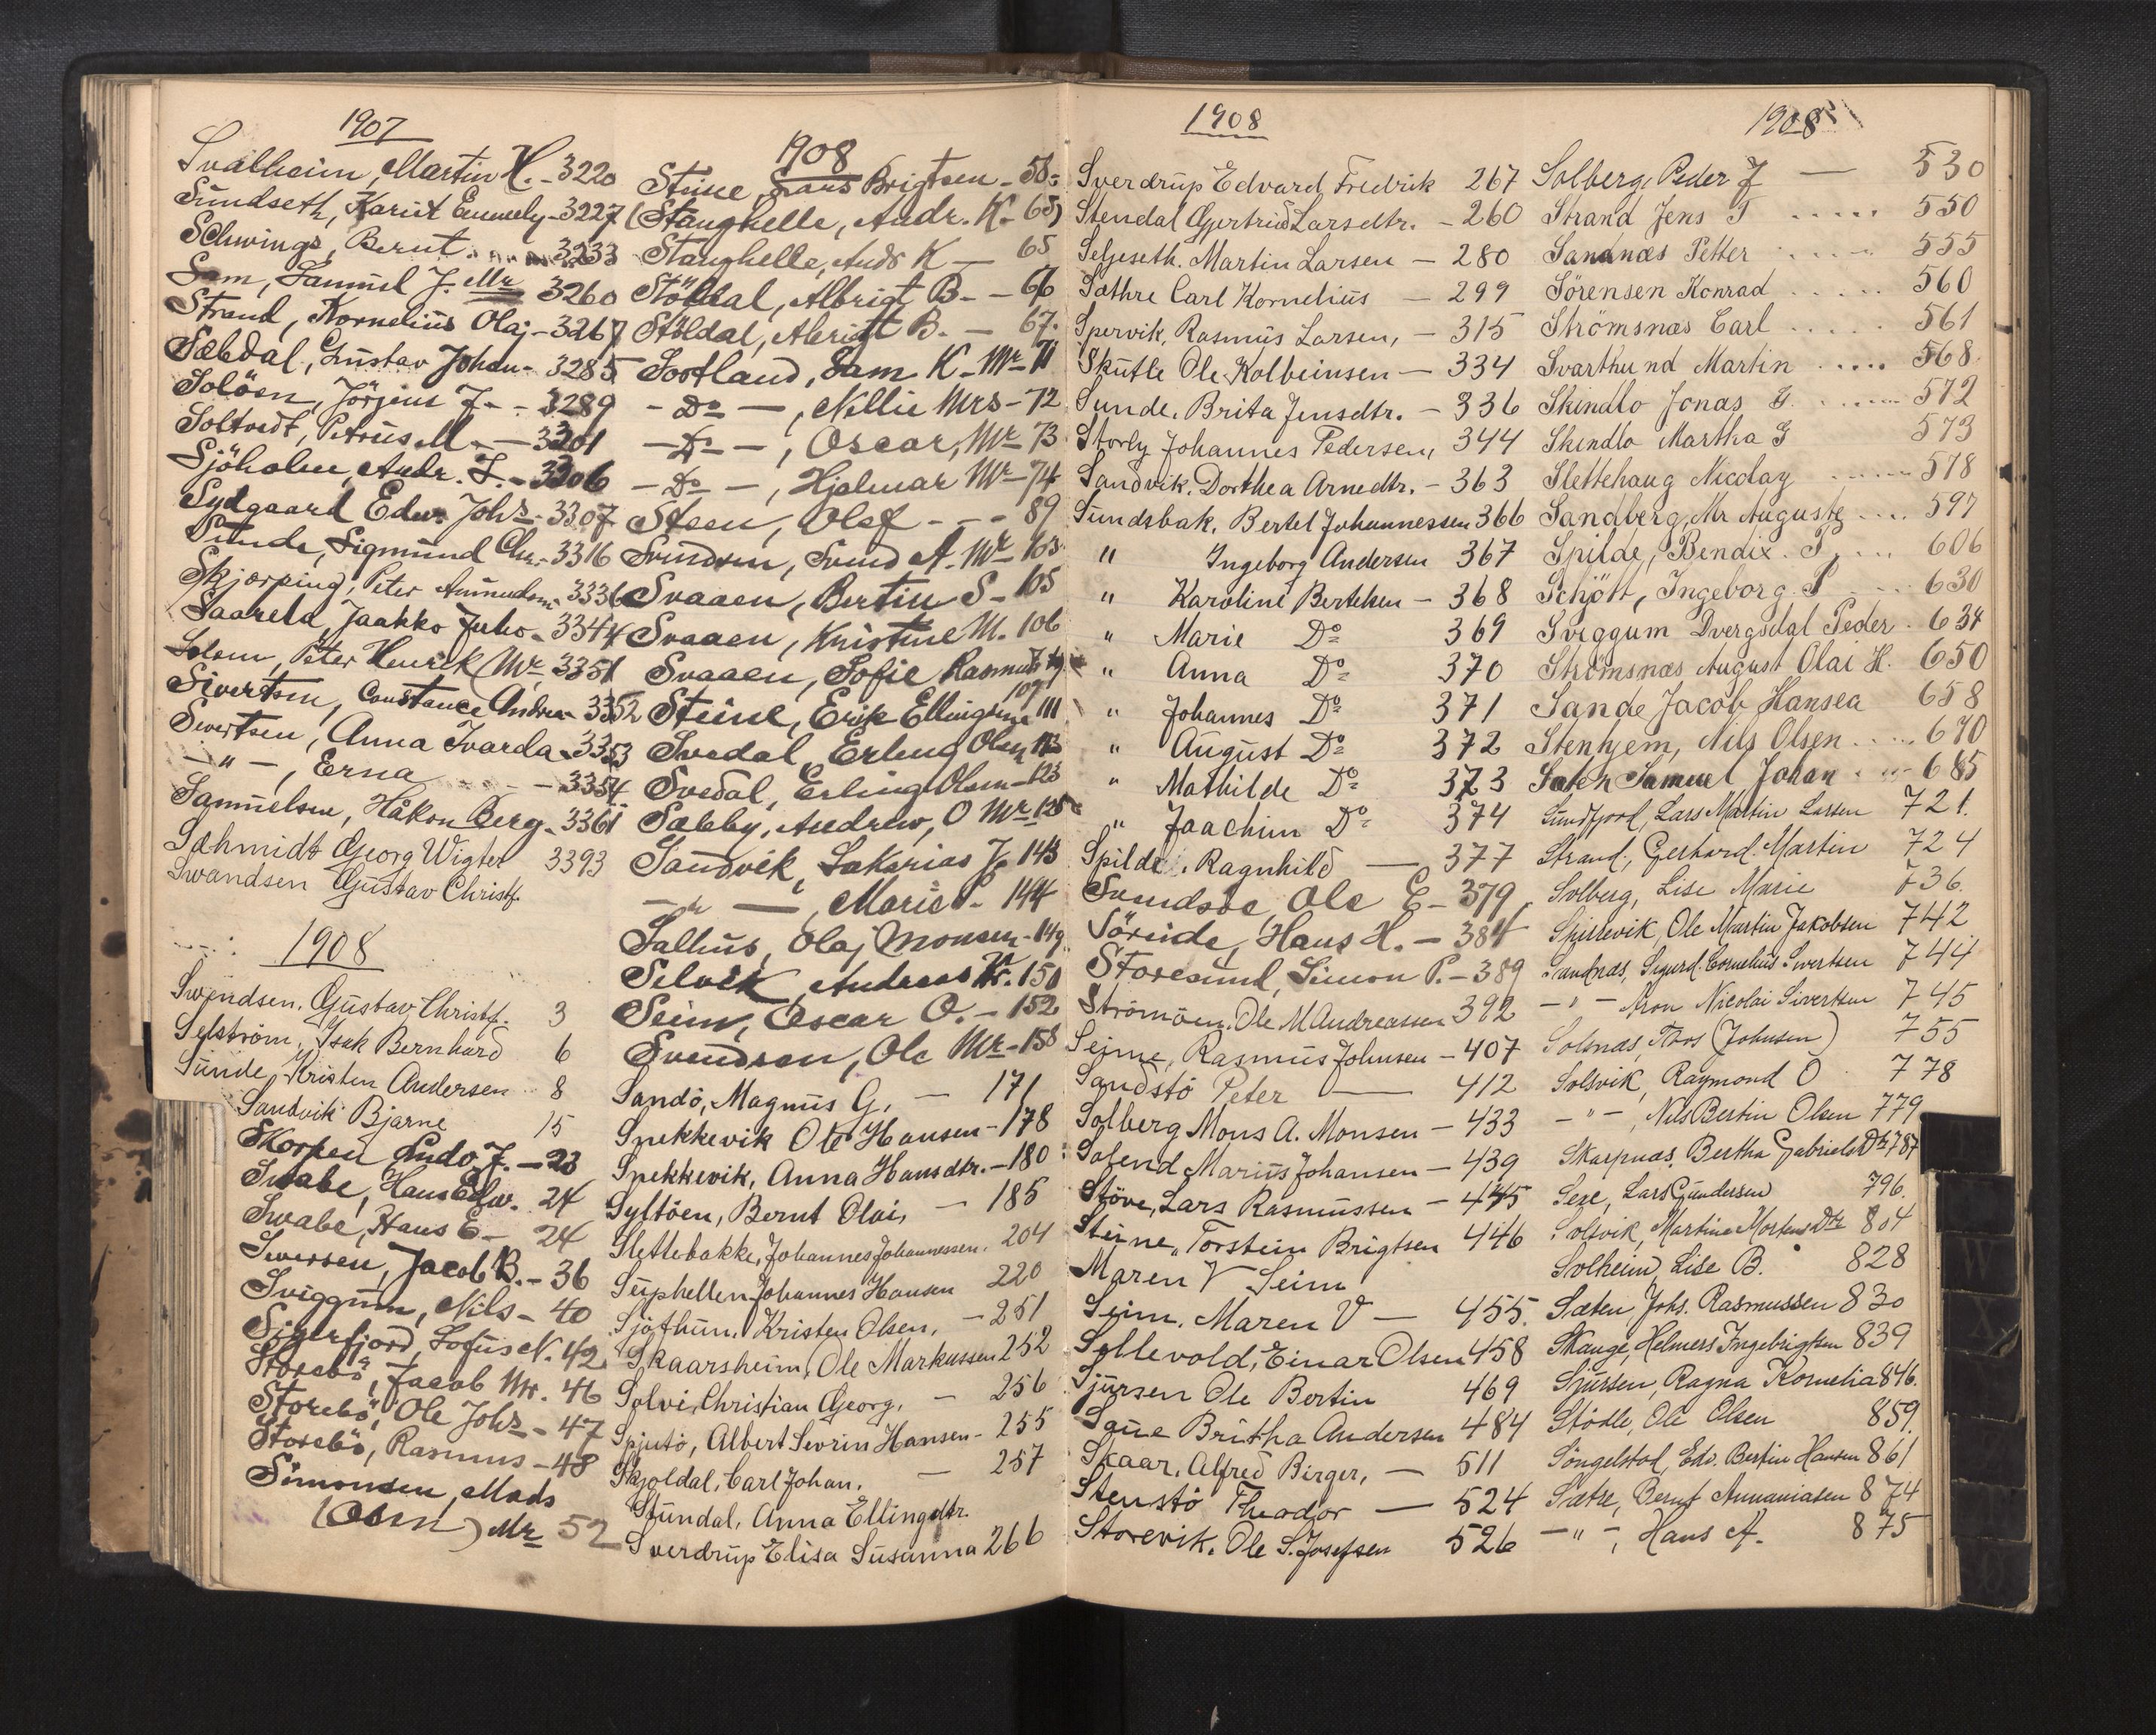 1907
Svalheim, Martin H. - 3220
Sundseth, Karit Emmely - 3227
Schwings, Bernt 3233
Sam, Samuel J. Mr 3260
Strand, Kornelius Olaj - 3267
Sæbdal, Gustav Johan - 3285
Solöen, Jörjens J. - 3289
Soltvedt, Petrus M. - 3301
Sjöholm, Andr. J. - 3306
Sydgaard Edw. Johs - 3307
Sunde, Sigmund Chr. - 3316
Skjorping, Peter 3336
Saarela, Jaakko Juho - 3344
Solem, Peter Henrik (Mr 3351
Sivertsen, Constance Andrea - 3352
Sivertsen, Anna Ivarda - 3353
- " - , Erna - 3354
Samuelsen, Håkon Berg - 3361
Schmidt Georg Wigter 3393
Swandsen Gustav Christf.
1908
Swendsen, Gustav Christf. 3
Selström, Isak Bernhard 6
Sunde, Kristen Andersen 8
Sandvik Bjarne 15
Skorpen Ludo J. - 23
Swabe, Hans Edw. 24
Swabe, Hans E - 24
Swersen, Jacob B. - 36
Sviggum, Nils - 40
Sigerfjord, Lofus N. 42
Storebö, Jacob Mr. 46
Storebö, Ole Johs - 47
Storebö, Rasmus - 48
Simonsen, Mads
(Olsen) Mr 52
1908
Steine Lars Brigtsen - 58
(Stanghelle, Andr. K - 65)
Stanghelle, Andr K - 65
Stöldal, Albrigt B - - 66
Stöldal, Albrigt B. - 67.
Sortland, Sam K - Mr 71
- Do - , Nellie Mrs - 72
- Do - , Oscar, Mr 73
- Do - , Hjelmar Mr - 74
Steen, Olef - - - 89
Svendsen, Svend A. Mr - 103
Svaaen, Bertin S - 105
Svaaen, Kristine M. 106
Svaaen, Sofie Rasmusdtr 107
Steine, Erik Ellingsen 111
Svedal, Erling Olsen 123
Svedal, Erling Olsen - 123
Sæbby, Andrew, O Mr 135
Sandvik, Sakarias J. 143
- " - , Marie P. - 144
Salhus, Olaj Monsen - 149
Selvik, Andreas Kr. 150
Seim, Oscar O. - 152
Svendsen, Ole Mr - 158
Sandö, Magnus G. - 171
Snekkevik Ole Hansen - 178
Spekkevik, Anna Hansdtr. - 180
Syltöen, Bernt Olai, - 185
Slettebakke, Johannes Johannessen, 204
Suphellen Johannes Hansen 220
Sjöthun, Kristen Olsen, - 251
Skaarsheim, Ole Markussen 252
Solvi, Christian Georg, - 256
Spjutö, Albert Sevrin Hansen - 255
Skjoldal, Carl Johan. - 257
Stundal, Anna Ellingdtr.
Sverdrup Elisa Susanna 266
1908
Sverdrup Edvard Fredrik 267
Stendal Gjertrud Larsdtr. - 260
Seljeseth. Martin Larsen - 280
Sæthre Carl Kornelius - 299
Spervik, Rasmus Larsen, - 315
Skutle Ole Kolbeinsen - 334
Sunde, Brita Jensdtr. - 336
Storly Johannes Pedersen, 344
Sandvik. Dorthea Arnedtr. - 363
Sundsbak. Bertel Johannessen 366
" Ingeborg Andersen 367
" Karoline Bertelsen - 368
" Marie Do 369
" Anna Do 370
" Johannes Do 371
" August Do 372
" Mathilde Do 373
" Joachim Do 374
Spilde. Ragnhild - 377
Sundsöe, Ole E - 379
Söreide, Hans H. - 384
Storesund, Simon P. - 389
Strömöen. Ole M Andreassen 392
Seime, Rasmus Johnsen - 407
Sandstö Peter - 412
Solberg Mons A. Monsen - 433
Solend Marius Johansen - 439
Stöve, Lars Rasmussen - 445
Steine, Torstein Brigtsen 446
Maren V Seim
Seim, Maren V - 455.
Sollevold, Einar Olsen 458
Sjursen Ole Bertin 469
Saue Britha Andersen 484
Skaar, Alfred Birger, - 511
Stenstö Theodor - 524
Storevik. Ole S. Josefsen 526
1908
Solberg, Peder J - 530
Strand Jens T ..... 550
Sandnæs Petter ..... 555
Sörensen Konrad ..... 560
Strömsnæs Carl .... 561
Svarthund Martin ..... 568.
Skindlo Jonas G. ..... 572
Skindlo Martha G 573
Slettehaug Nicolay ..... 578
Sandberg, Mr Auguste .... 597
Spilde, Bendix. P. ... 606
Schjött, Ingeborg. P 630
Sviggum Dvergsdal Peder . 634
Strömsnæs August Olai H. 650
Sande Jacob Hansea 658
Stenhjem, Nils Olsen .... 670
Sæter Samuel Johan 685
Sundfjord, Lars Martin Larsen 721.
Strand, Gerhard Martin 724
Solberg, Lise Marie 736.
Spillevik, Ole Martin Jakobsen 742
Sandnæs, Sigurd Cornelius Sivertsen 744
- " - Aron Nicolai Sivertsen 745
Solsnæs, Thos (Johnsen) 755
Solsvik, Raymond O 778
- " - , Nils Bertin Olsen 779
Skarpnæs, Bertha Gabriels Dtr 787
Seze, Lars Gundersen 796.
Solsvik, Martine Mortens Dtr 804
Solheim, Lise B. 828
Sæten, Johs. Rasmussen 830
Skauge, Helmers Ingebrigtsen 839
Sjursen, Ragna Kornelia 846.
Stödle, Ole Olsen 859.
Söngelstad, Edv. Bertin Hansen 861
Sætre, Bernt Annaniasen 874
- " - , Hans A. 875
W
X